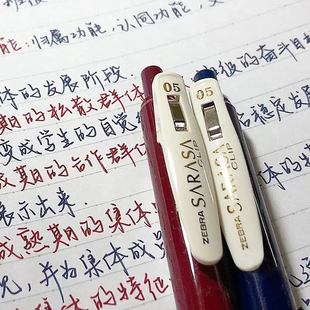 能:归属功能,认同功能,支
体的发展阶段
级的奋斗目标
期的松散群体
变成学生的自觉
后稳定发展
期的合作群体
表示出来.
成熟期的集体
况,并为集体成员
体的特征
05
ZEBRA SARASA CLIP
05
ZEBRA SARASA CLIP